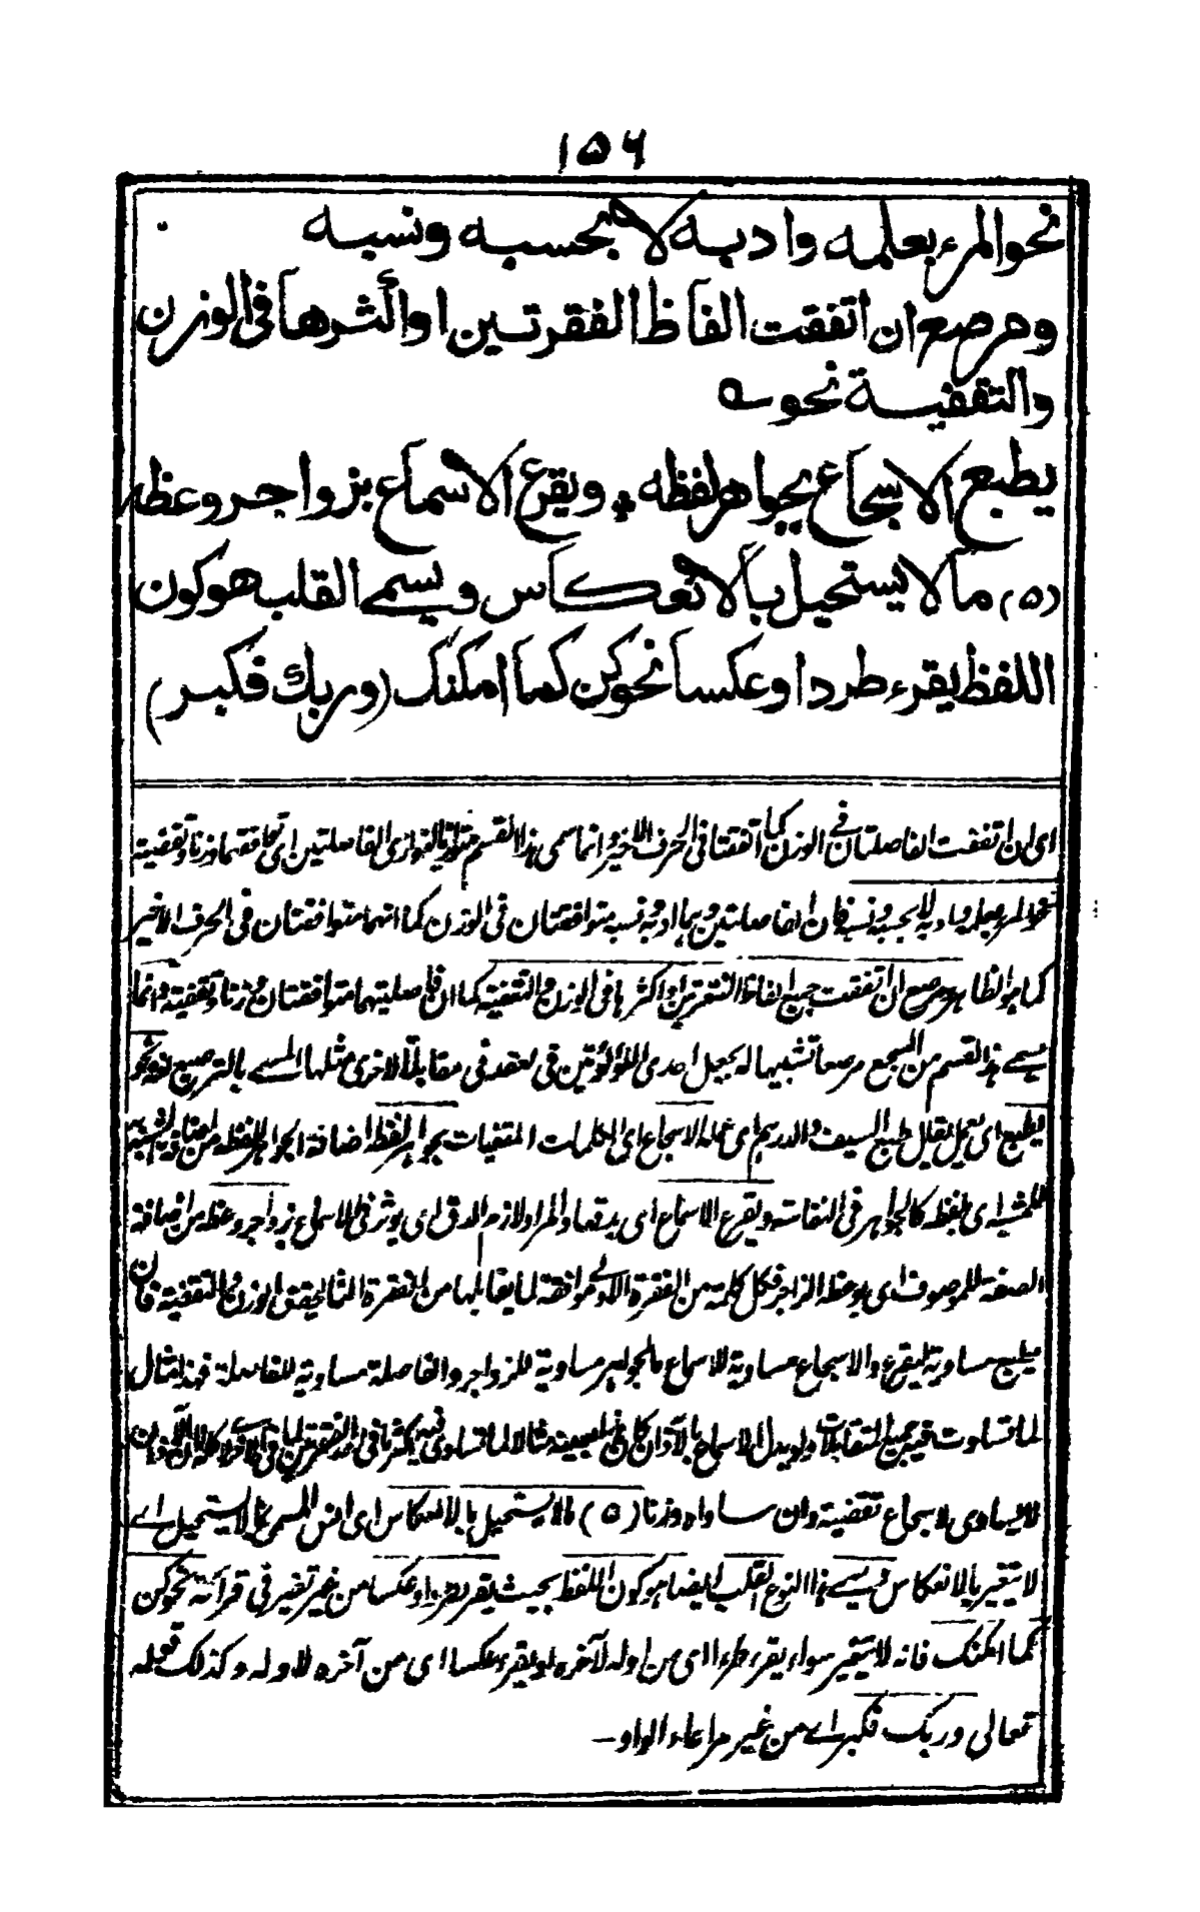 ١٥٦
نحو المرء بعلمه وادبه لا بحسبه ونسبه
ومرصع ان اتفقت الفاظ الفقرتين او اكثرها فى الوزن
والتقفية نحوه
يطبع الاسجاع بجواهر لفظه * ويقرع الاسماع بزواجر وعظه
(٥) ما لا يستحيل بالانعكاس ويسمى القلب هو كون
اللفظ يقرء طردا وعكسا نحو كن كما امكنك (وربك فكبر)
اى ان اتفقت الفاصلتان فى الوزن كما اتفقتا فى الحرف الاخير وانما سمى هذا القسم متوازيا لتوازى الفاصلتين اى توافقهما وزنا وتقفية
نحو المرء بعلمه وادبه لا بحسبه ونسبه فان الفاصلتين وهما ادبه ونسبه متوافقتان فى الوزن كما انهما متوافقتان فى الحرف الاخير
كما هو الظاهر ومرصع ان اتفقت جميع الفاظ الفقرتين او اكثرها فى الوزن والتقفية كما ان فاصليتهما متوافقتان وزنا وتقفية وانما
سمى هذا القسم من السجع مرصعا تشبيها له بجعل احدى اللؤلؤتين فى العقد فى مقابلة الاخرى مثلها المسمى بالترصيع لغة نحو
يطبع اى يعمل يقال طبع السيف والدرهم اى عمله الاسجاع اى الكلمات المقفيات بجواهر لفظه اضافة الجواهر للفظه من اضافة المشبه به
للمشبه اى بلفظه كالجواهر فى النفاسة ويقرع الاسماع اى يدقها والمراد لازم الدق اى يوثر فى الاسماع بزواجر وعظه من اضافة
الصفة للموصوف اى بوعظه الزاجر فكل كلمة من الفقرة الاولى موافقة لما يقابلها من الفقرة الثانية لتحقق الوزن والتقفية فان
يطبع مساوية ليقرع والاسجاع مساوية للاسماع والجواهر مساوية للزواجر والفاصلة مساوية للفاصلة فهذا مثال
لما تساوت فيه جميع المتقابلات ولو بدل الاسماع بالآذان كان
لا يساوى الاسجاع تقفية وان ساواه وزنا (٥) ما لا يستحيل بالانعكاس اى الفن المسمى بما لا يستحيل اے
لا يتغير بالانعكاس ويسمى هذا النوع القلب ايضا هو كون اللفظ بحيث يقرء طردا وعكسا من غير تغير فى قرأته نحو كن
كما امكنك فانه لا يتغير سواء يقرء طردا اى من اوله لآخره او يقرء عكسا اى من آخره لاوله وكذلك قوله
تعالى وربك فكبر اے من غير مراعاة الواو -